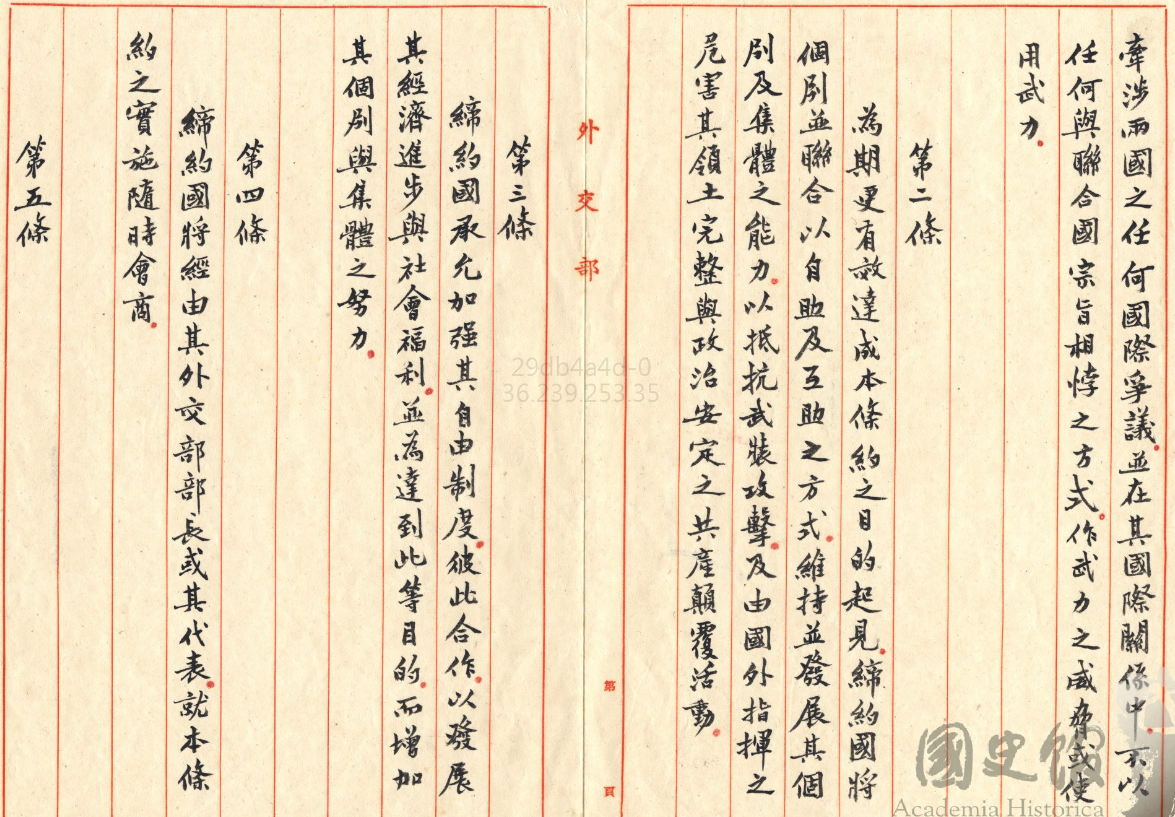 牽涉兩國之任何國際爭議。並在其國際關係中。不以
任何與聯合國宗旨相悖之方式。作武力之威脅或使
用武力。
第二條
為期更有效達成本條約之目的起見。締約國將
個別並聯合以自助及互助之方式。維持並發展其個
別及集體之能力。以抵抗武裝攻擊。及由國外指揮之
危害其領土完整與政治安定之共產顛覆活動。
外交部
第 頁
第三條
締約國承允加強其自由制度。彼此合作。以發展
其經濟進步與社會福利。並為達到此等目的。而增加
其個別與集體之努力。
第四條
締約國將經由其外交部部長或其代表。就本條
約之實施隨時會商。
第五條
29db4a4d-0
36.239.253.35
國史館
Academia Historica